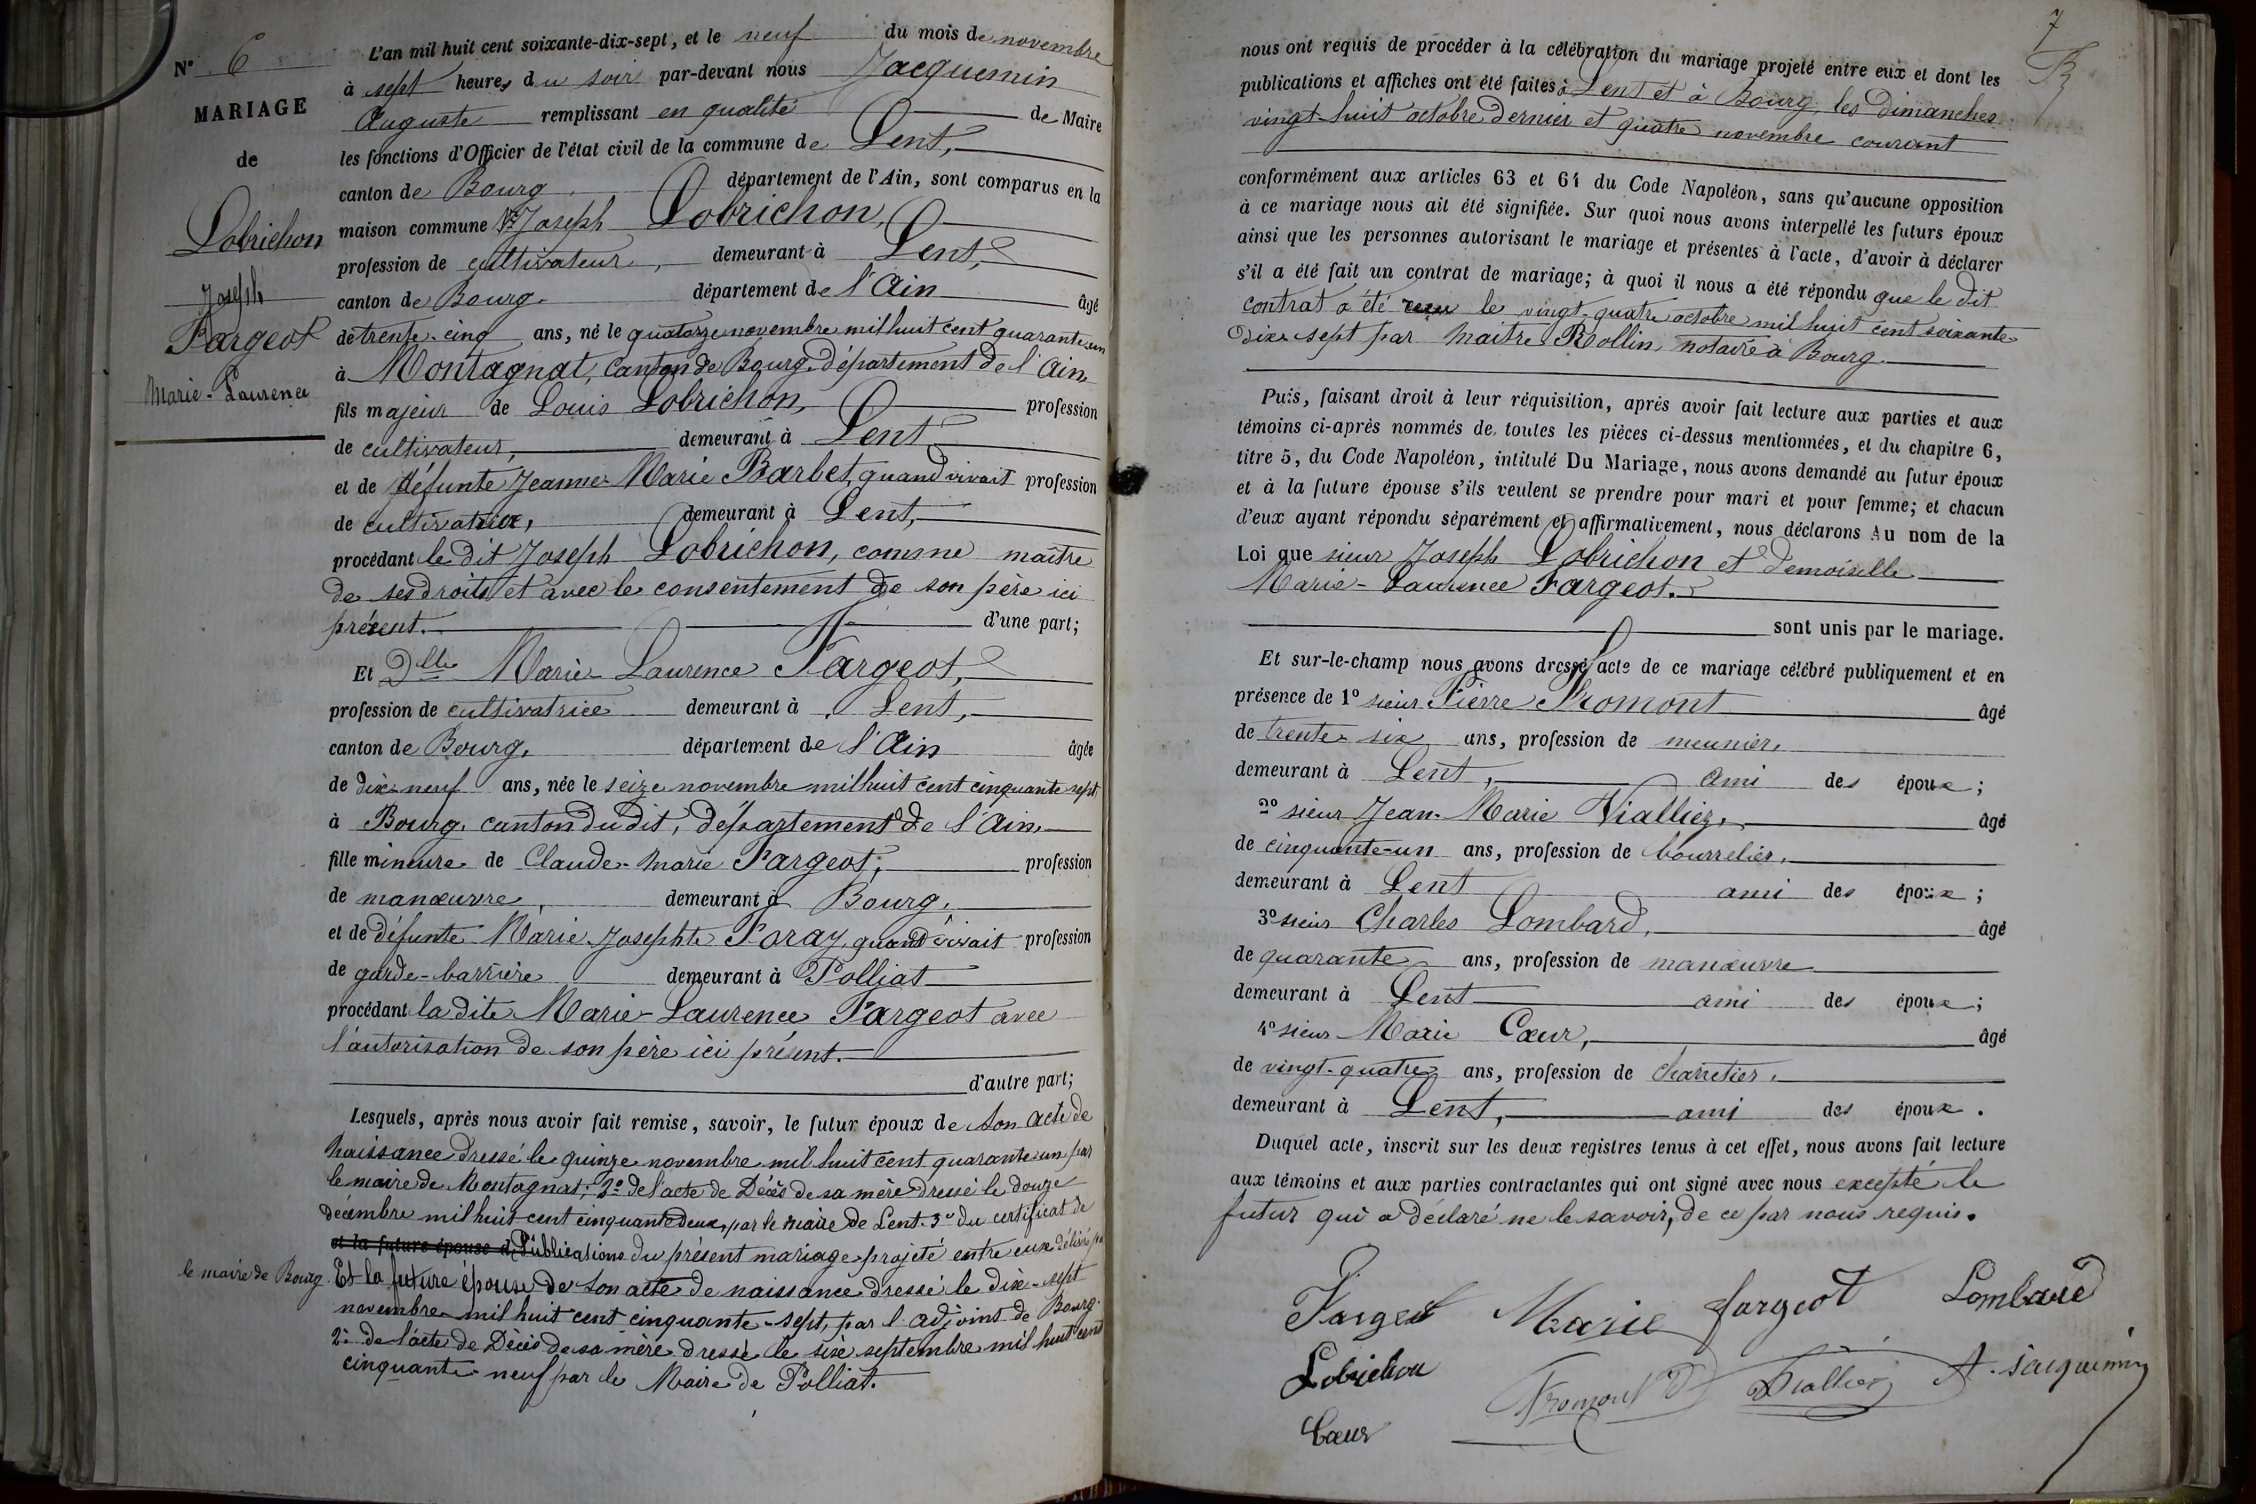 N° 6
MARIAGE
de
Lobrichon
Joseph
Fargeot
Marie-Laurence
L'an mil huit cent soixante-dix-sept, et le neuf du mois de novembre
à sept heures du soir par-devant nous Jacquemin
Auguste remplissant en qualité de Maire
les fonctions d'Officier de l'état civil de la commune de Lent,
canton de Bourg département de l'Ain, sont comparus en la
maison commune Sr Joseph Lobrichon,
profession de cultivateur, demeurant à Lent,
canton de Bourg. département de l'Ain âgé
de trente-cinq ans, né le quatorze novembre mil huit cent quarante un
à Montagnat, canton de Bourg, département de l'Ain
fils majeur de Louis Lobrichon, profession
de cultivateur, demeurant à Lent
et de défunte Jeanne-Marie Barbet, quand vivait profession
de cultivatrice, demeurant à Lent,
procédant le dit Joseph Lobrichon, comme maître
de ses droits et avec le consentement de son père ici
présent. d'une part;
Et Dlle Marie-Laurence Fargeot,
profession de cultivatrice demeurant à Lent,
canton de Bourg, département de l'Ain âgée
de dix-neuf ans, née le seize novembre mil huit cent cinquante sept
à Bourg, canton du dit, département de l'Ain,
fille mineure de Claude-Marie Fargeot, profession
de manœuvre, demeurant à Bourg,
et de défunte Marie-Josephte Foray, quand vivait profession
de garde-barrière demeurant à Polliat
procédant la dite Marie-Laurence Fargeot avec
l'autorisation de son père ici présent.
d'autre part;
Lesquels, après nous avoir fait remise, savoir, le futur époux de son acte de
naissance dressé le quinze novembre mil huit cent quarante un par
le maire de Montagnat; 2° de l'acte de Décès de sa mère dressé le douze
décembre mil huit cent cinquante deux, par le maire de Lent. 3° du certificat de
et la future épouse d Publications du présent mariage projeté entre eux délivré par
le maire de Bourg. Et la future épouse de son acte de naissance dressé le dix-sept
novembre mil huit cent cinquante-sept, par l'adjoint de Bourg.
2° de l'acte de Décès de sa mère dressé le six septembre mil huit cent
cinquante-neuf par le Maire de Polliat.
7
nous ont requis de procéder à la célébration du mariage projeté entre eux et dont les
publications et affiches ont été faites à Lent et à Bourg, les dimanches
vingt-huit octobre dernier et quatre novembre courant
conformément aux articles 63 et 64 du Code Napoléon, sans qu'aucune opposition
à ce mariage nous ait été signifiée. Sur quoi nous avons interpellé les futurs époux
ainsi que les personnes autorisant le mariage et présentes à l'acte, d'avoir à déclarer
s'il a été fait un contrat de mariage; à quoi il nous a été répondu que le dit
contrat a été reçu le vingt-quatre octobre mil huit cent soixante
dix-sept par maître Rollin, notaire à Bourg.
Puis, faisant droit à leur réquisition, après avoir fait lecture aux parties et aux
témoins ci-après nommés de toutes les pièces ci-dessus mentionnées, et du chapitre 6,
titre 5, du Code Napoléon, intitulé Du Mariage, nous avons demandé au futur époux
et à la future épouse s'ils veulent se prendre pour mari et pour femme; et chacun
d'eux ayant répondu séparément et affirmativement, nous déclarons Au nom de la
Loi que sieur Joseph Lobrichon et demoiselle
Marie-Laurence Fargeot.
sont unis par le mariage.
Et sur-le-champ nous avons dressé acte de ce mariage célébré publiquement et en
présence de 1° sieur Pierre Fromont âgé
de trente-six ans, profession de meunier,
demeurant à Lent, ami des époux;
2° sieur Jean-Marie Viallier, âgé
de cinquante-un ans, profession de bourrelier,
demeurant à Lent ami des époux;
3° sieur Charles Lombard, âgé
de quarante ans, profession de manœuvre
demeurant à Lent ami des époux;
4° sieur Marie Cœur, âgé
de vingt-quatre ans, profession de charretier,
demeurant à Lent, ami des époux.
Duquel acte, inscrit sur les deux registres tenus à cet effet, nous avons fait lecture
aux témoins et aux parties contractantes qui ont signé avec nous excepté le
futur qui a déclaré ne le savoir, de ce par nous requis.
Fargeot Marie fargeot Lombard
Lobrichon Fromont Viallier A. Jacquemin
Cœur